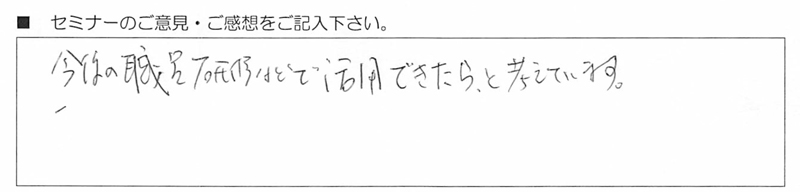 ■ セミナーのご意見・ご感想をご記入下さい。
今後の職員研修などで活用できたら、と考えています。